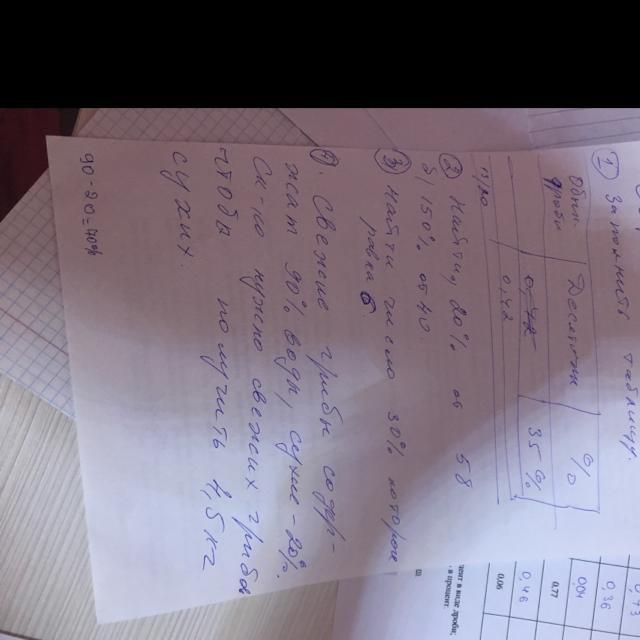 ① Заполнить таблицу.
Обыкн дроби | Десятичн | %
0,42 | 35%
② Найти, 20% от 58
3) 150% от 40.
③ Найти число 30% которых
равна 6
④. Свежие грибы содер-
жат 90% воды, сухие - 20%.
Ск-ко нужно свежих грибов
чтобы получить 4,5 кг
сухих.
0,36
0,04
0,77
0,46
0,06
в виде дроби;
в процент.